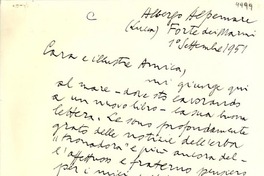 C
4499
Albergo Alpemare
(Lucca) Forte dei Marmi
1º Settembre 1951
Cara e illustre Amica,
mi giunge qui
al mare - dove sto lavorando
a un nuovo libro - la sua buona
lettera. Le sono profondamente
grato delle notizie dell'erba
"tronadora" e più ancora del-
l'affettuoso e fraterno pensiero
per i miei